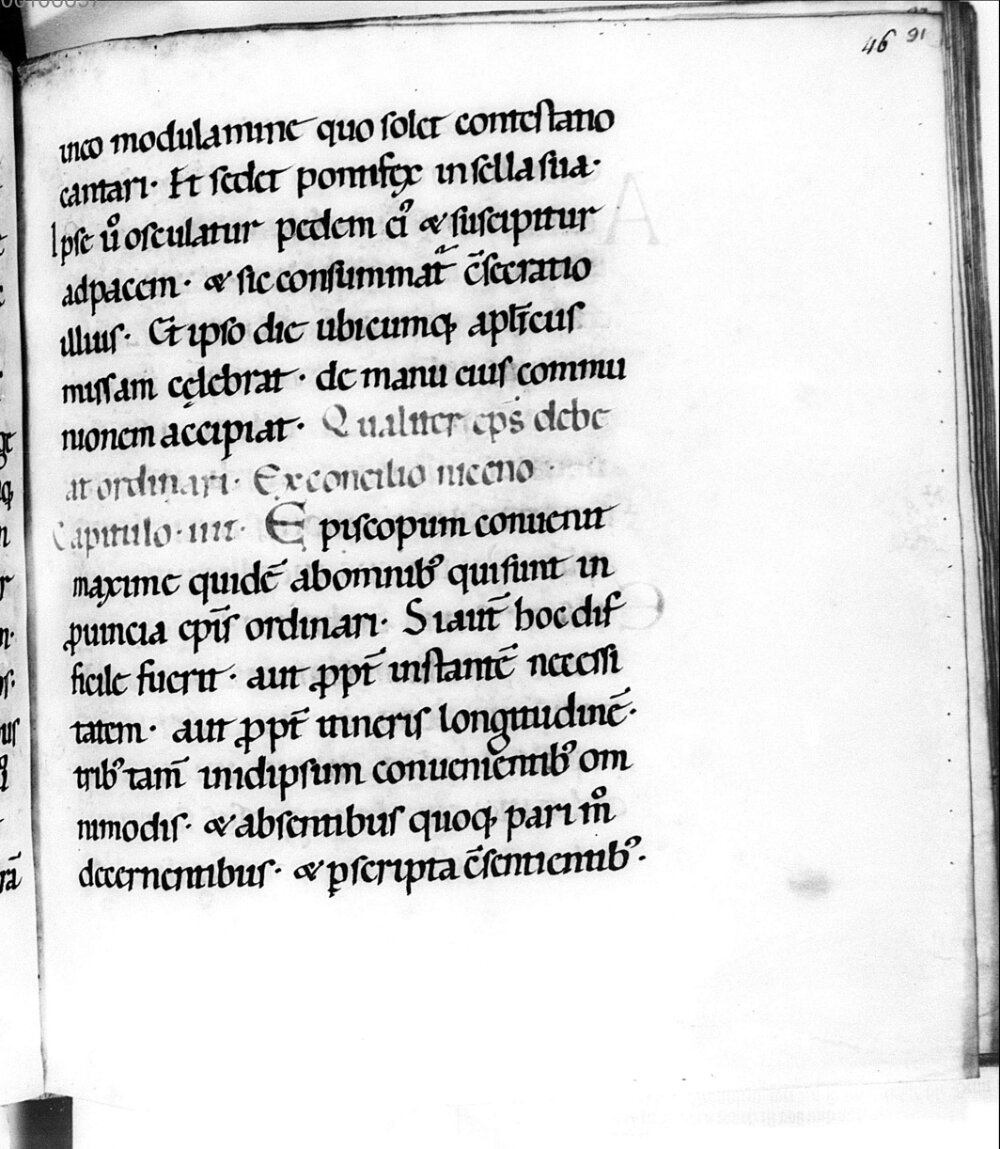 46 91
in eo modulamine quo solet contestatio
cantari· Et sedet pontifex in sella sua·
Ipse ů osculatur pedem ei᾽ & suscipitur
ad pacem· & sic consummat̄ c̄secratio
illius· Et ipso die ubicumq; aplīcus
missam cęlebrat· de manu eius commu
nionem accipiat· Qualiter ep̄s debe
at ordinari· Ex concilio niceno·
Capitulo·iiii· Episcopum conuenit
maxime quidē ab omnib᾽ qui sunt in
ꝓuincia ep̄is ordinari· Si aut̄ hoc dif
ficile fuerit· aut ꝓpt̄ instantē necessi
tatem· aut ꝓpt̄ itineris longitudinē·
trib᾽ tam̄ in id ipsum conuenientib᾽ om
nimodis· & absentibus quoq; pari m̊
decernentibus· & ꝑ scripta c̄sentientib᾽·